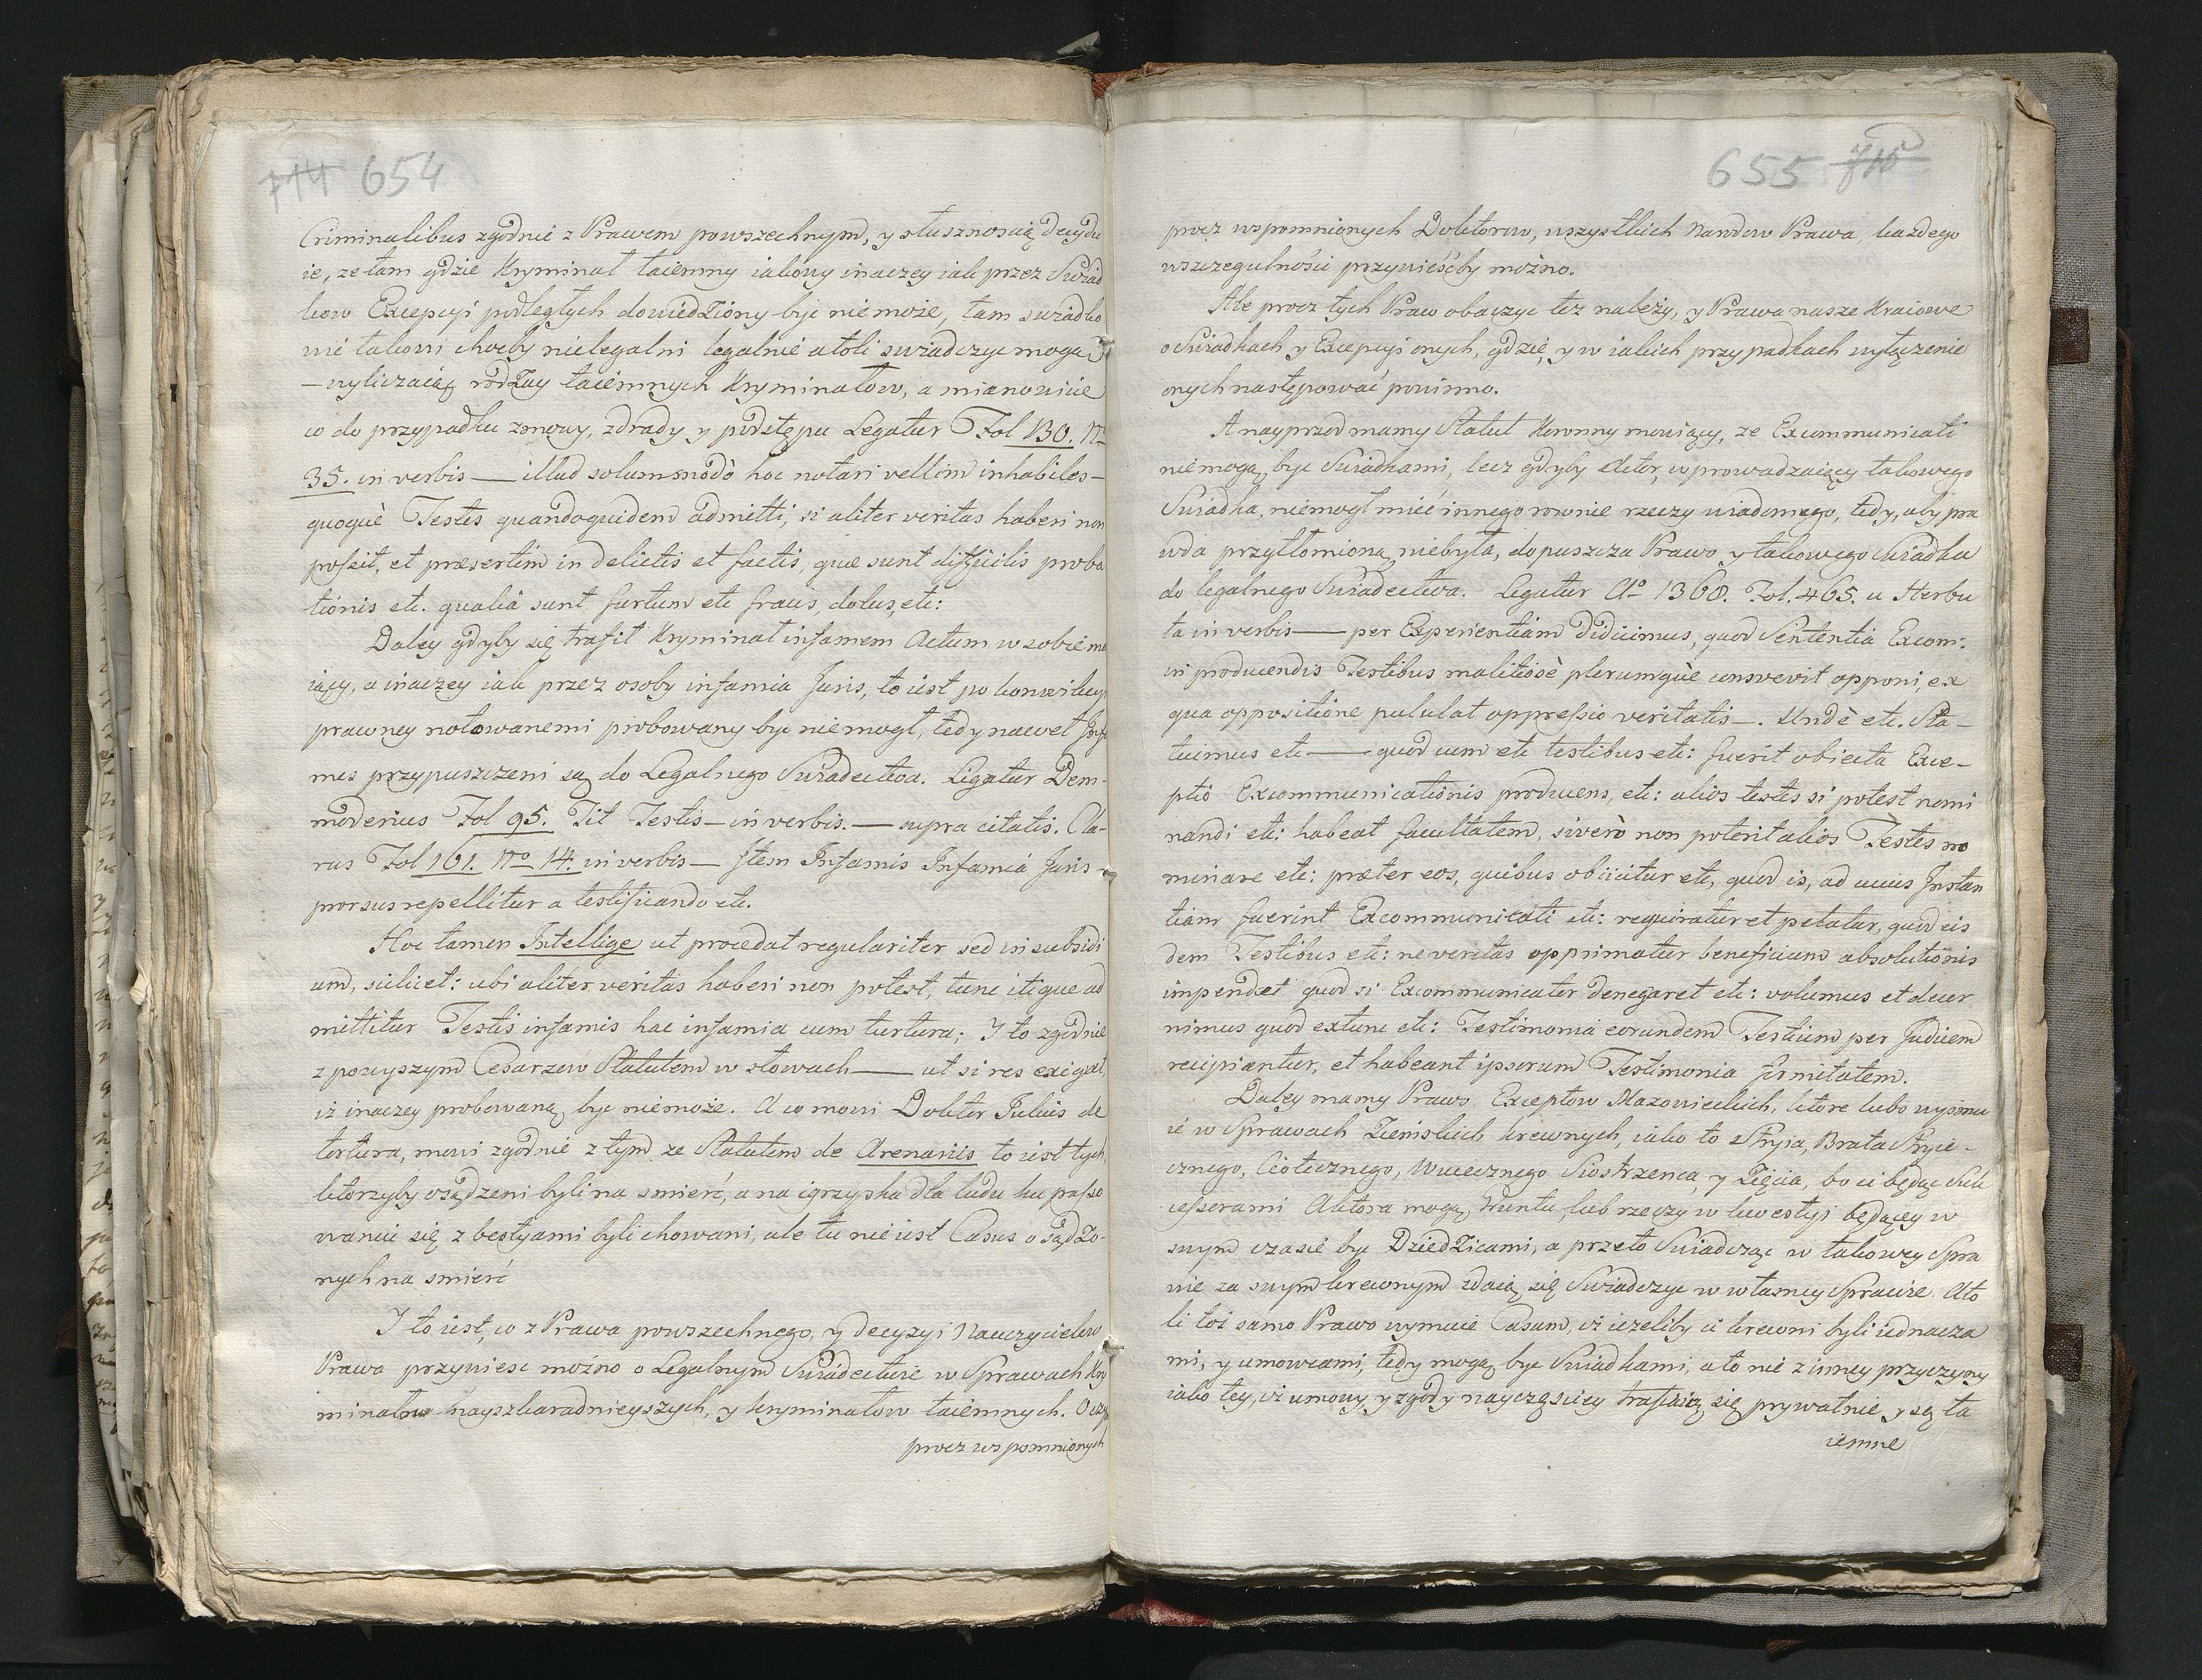 714 654
Criminalibus zgodnie z Prawem powszechnym, y słusznoscią decydu
ie, ze tam gdzie Kryminał taiemny iakowy inaczey iak przez Swiad
kow Excepcyi podległych dowiedziony byc nie może, tam swiadko
wie takowi choćby nielegalni legalnie atoli swiadczyc mogą
— wyliczaiąc rodzay taiemnych Kryminałow, a mianowicie
co do przypadku zmowy, zdrady y podstępu Legatur Fol 130. N
35. in verbis — illud solummodò hoc notari vellim inhabiles
quoquè Testes quandoquidem admitti, si aliter veritas haberi non
possit, et præsertim in delictis et factis, quæ sunt difficilis proba
tionis etc. qualia sunt furtum etc fraus, dolus, etc:
Daley gdyby się trafił Kryminał infamem Actum w sobie ma
iący, a inaczey iak przez osoby infamia Juris, to iest po konwikcyi
prawney notowanemi probowany byc niemogł, tedy nawet Infa
mes przypuszczeni są do Legalnego Swiadectwa. Legatur Dem-
moderius Fol 95. Tit Testis — in verbis. — supra citatis. Cla-
rus Fol 161. No 14. in verbis — Item Infamis Infamiá Juris
porsus repellitur a testificando etc.
Hoc tamen Intellige ut procedat regulariter sed in subsidi
um, scilicet: ubi alitér veritas haberi non potest, tunc itique ad
mittitur Testis infamis hac infamia cum turtura; I to zgodnie
z powyszym Cesarzow Statutem w słowach — ut si res exigat,
iż inaczey probowaną byc niemoże. A co mowi Doktor Julius de
tortura, mowi zgodnie z tym ze Statutem de Arenariis to iest tych
ktorzyby osądzeni byli na smierć, a na igrzyska dla ludu ku passo
waniu się z bestyami byli chowani, ale tu nie iest Casus osądzo-
nych na smierć
I to iest, co z Prawa powszechnego, y decyzyi Nauczycielow
Prawa przyniesc możno o Legalnym Swiadectwie w Sprawach Kry
minałow nayszkaradnieyszych, y kryminałow taiemnych.
procz wspomnionych
655 715
procz wspomnionych Doktorow, wszystkich Narodow Prawa każdego
wszczegulności przynieśćby możno.
Ale procz tych Praw obaczyc tez należy, y Prawa nasze Kraiowe
o Swiadkach y Excepcyi onych, gdzie, y w iakich przypadkach wyłączenie
onych następować powinno.
A nayprzod mamy Statut Koronny mowiący, ze Excommunicati
niemogą byc Swiadkami, lecz gdyby Aktor, wprowadzaiący takowego
Swiadka, niemogł mieć innego rownie rzeczy wiadomego, tedy, aby pra
wda przytłomioną niebyła, dopuszcza Prawo y takowego Swiadka
do legalnego Swiadectwa. Legatur Ao 1368. Fol. 465. u Herbu
ta in verbis — per Experientiam didicimus, quod Sententia Excom:
in producendis Testibus malitiosè plerumquè consvevit opponi, ex
qua oppositione pululat oppressio veritatis —. Undè etc. Sta-
tuimus etc — quod cum etc testibus etc: fuerit obiecta Exce-
ptio Excommunicationis producens, etc: alios testes si potest nomi
nandi etc: habeat facultatem, siverò non poterit alios Testes no
minare etc: præter eos, quibus obiicitur etc, quod is, ad cuius Instan
tiam fuerint Excommunicati etc: requiratur et petatur, quod eis
dem Testibus etc: ne veritas opprimatur beneficium absolutionis
impendat quod si Excommunicator denegaret etc: volumus et decer
nimus quod extunc etc: Testimonia eorundem Testium per Judicem
recipiantur, et habeant ipsorum Testimonia firmitatem.
Daley mamy Prawo Exceptow Mazowieckich, ktore lubo wyimu
ie w Sprawach Ziemskich krewnych, iako to Stryia, Brata Stryie-
cznego, Ciotecznego, Wuiecznego Siostrzenca, y Zięcia, bo ci będąc Suk
cessorami Aktora mogą Gruntu, lub rzeczy w kwestyi będącey w
swym czasie byc Dziedzicami, a przeto Swiadcząc w takowey Spra
wie za swym krewnym zdaią się Swiadczyc w własney Sprawie. Ato
li toż samo Prawo wymuie Casum, iż iezeliby ci krewni byli iednacza
mi, y umowcami, tedy mogą byc Swiadkami, a to nie z inney przyczyny
iako tey, iż umowy, y zgody nayczęsciey trafiaią się prywatnie y są ta
iemne